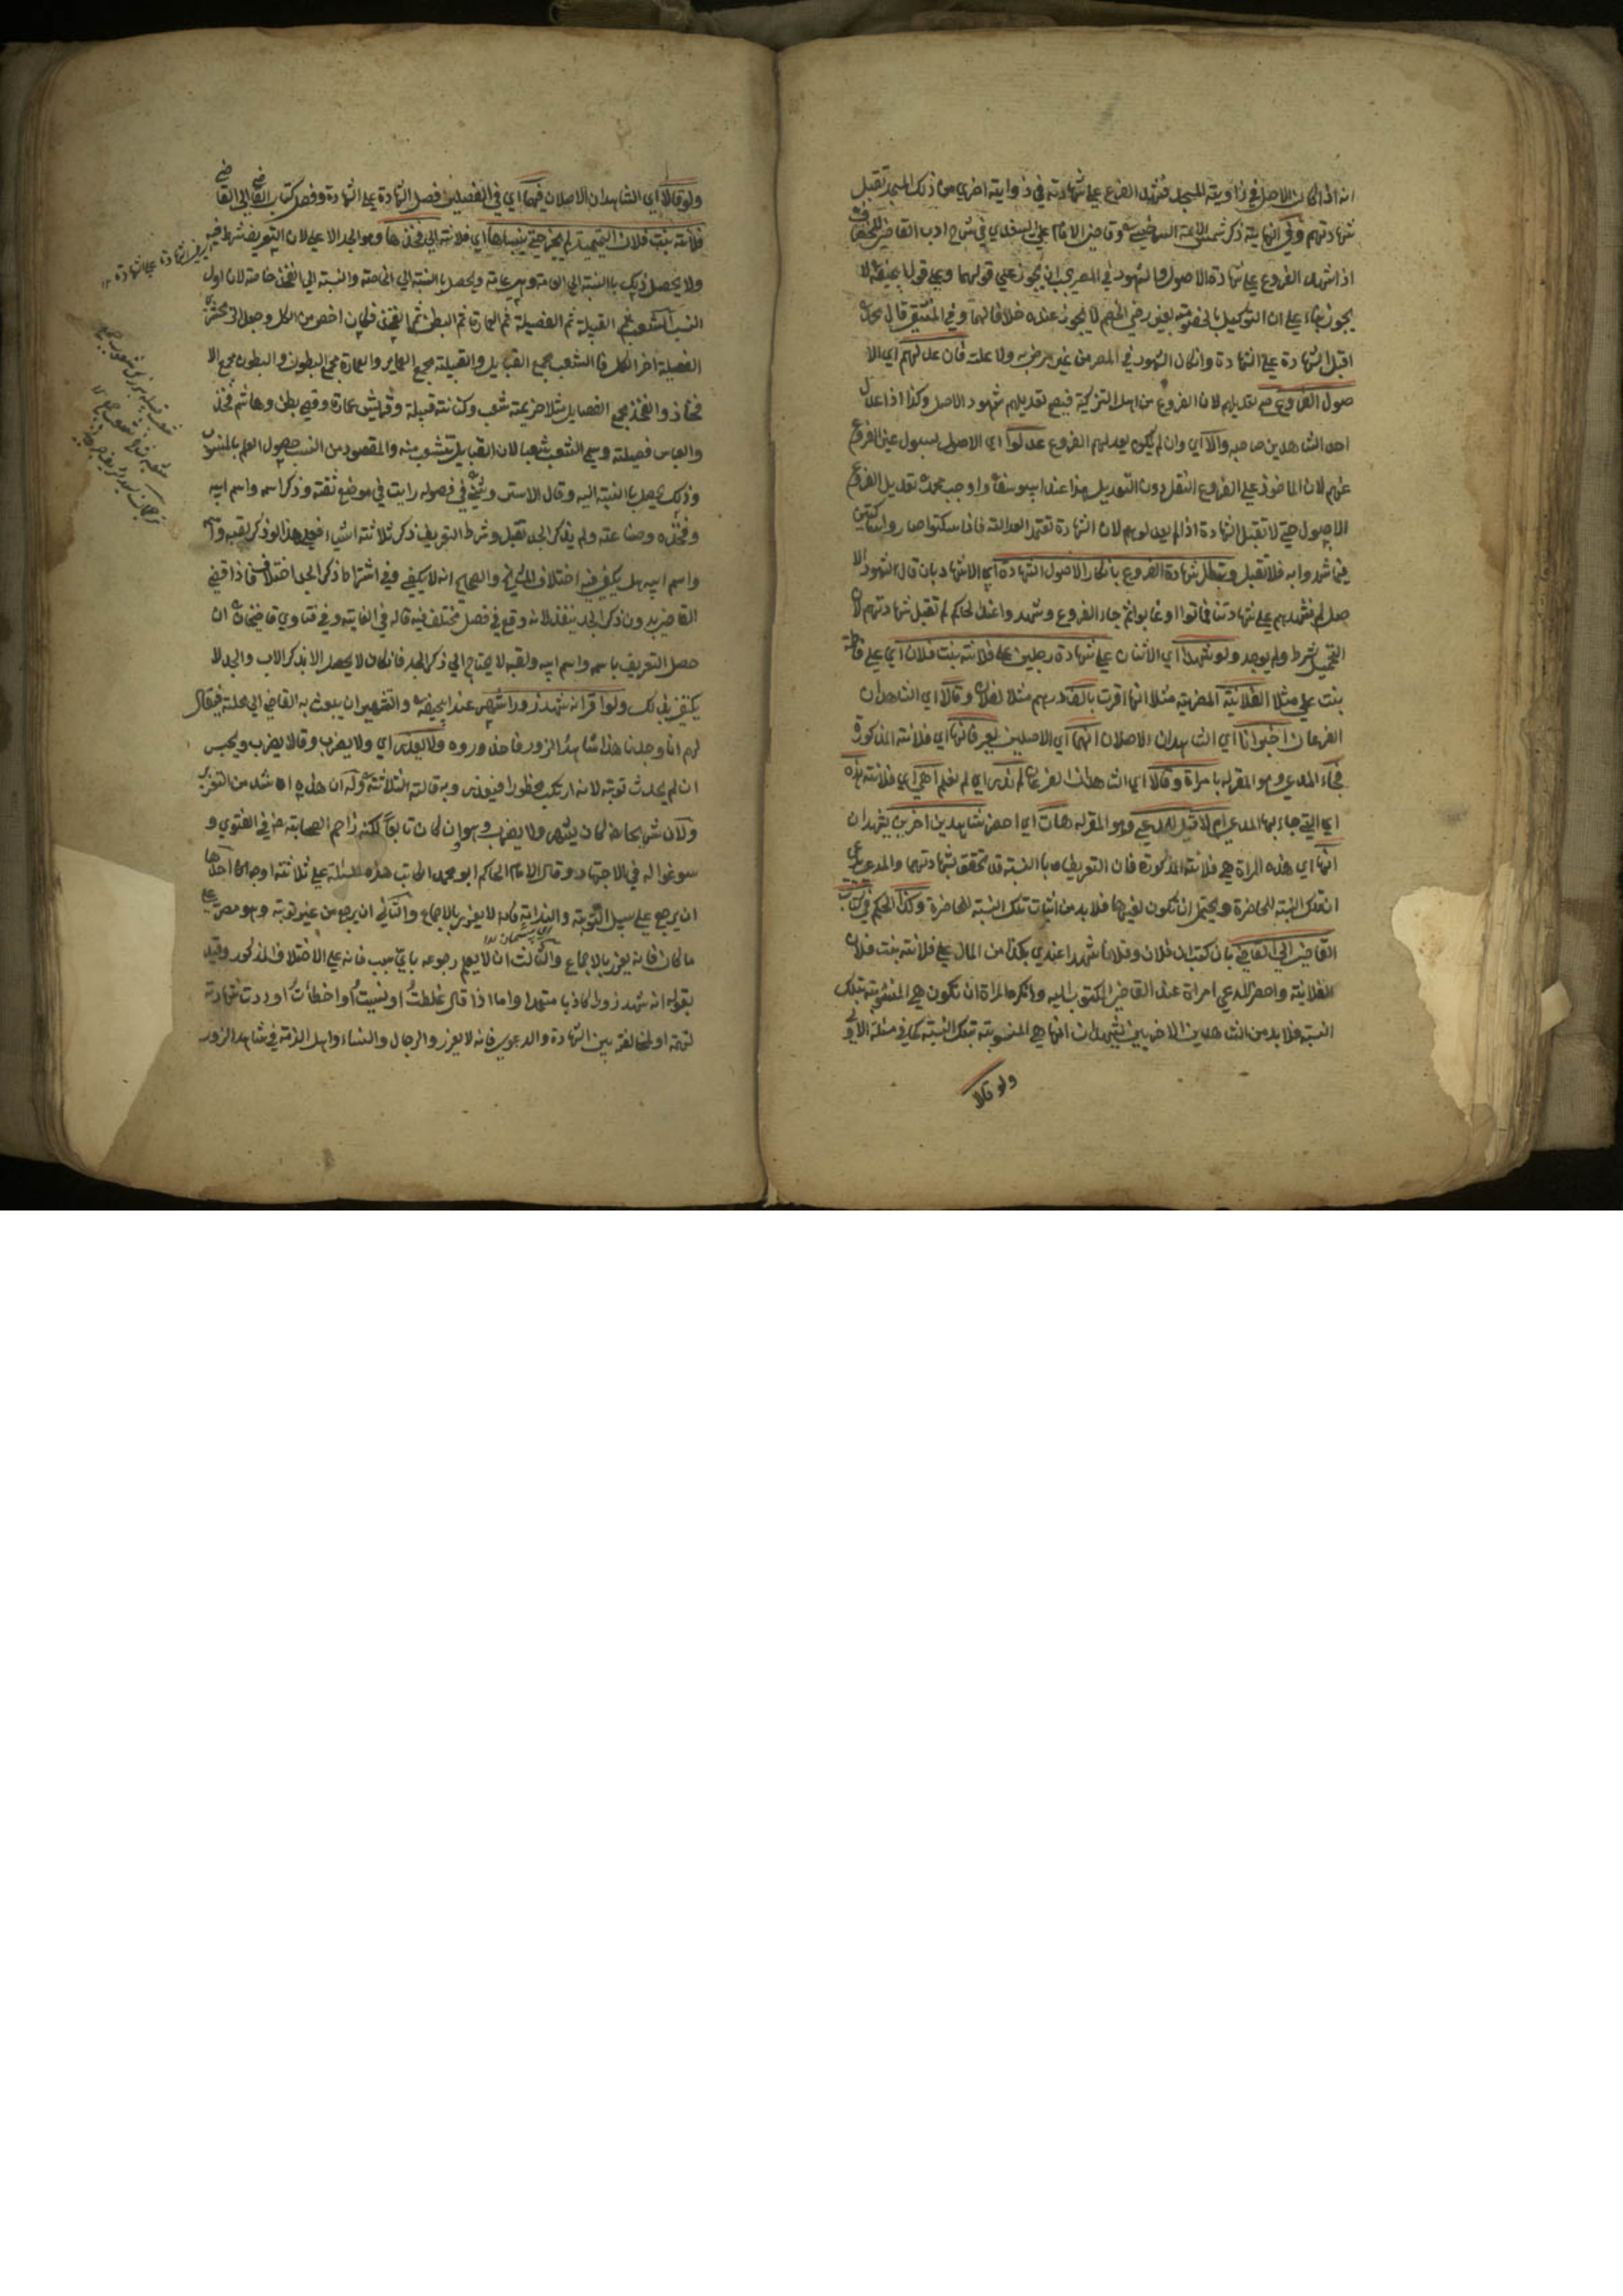 انه اذا كان الاصل في زاوية المسجد فشهد الفرع على شهادته في زاوية اخرى من ذلك المسجد تقبل
شهادتهم وفي النهاية ذكر شمس الائمة السرخسي وقاضي الامام علي السغدي في شرح ادب القاضي للخصاف
اذا شهد الفروع على شهادة الاصول والشهود في المصر يجب ان يجوز على قولهما وعلى قول ابي حنيفة لا
يجوز بناء على ان التوكيل بالخصومة بغير رضى الخصم لا يجوز عنده خلافا لهما وفي المنتقى قال محمد
اقبل الشهادة على الشهادة وان كان الشهود في المصر من غير مرض به ولا علة فان عدلهم اي الا
صول الفروع صح تعديلهم لان الفروع من اهل التزكية فيصح تعديلهم شهود الاصل وكذا اذا عدل
احد الشاهدين صاحبه والا اي وان لم يكن يعدلهم الفروع عدلوا اي الاصول لسول عين الفروع
عنهم لان الماخوذ على الفروع النقل دون التعديل هذا عند ابي يوسف واوجب محمد تعديل الفروع
الاصول حتى لا تقبل الشهادة اذا لم يعدلوهم لان الشهادة تعتمد العدالة فاذا سكتوا صاروا ساكتين
فيما شهدوا به فلا تقبل وتبطل شهادة الفروع بانكار الاصول الشهادة اي الاشهاد بان قال الشهود الا
صل لم نشهدهم على شهادتنا فماتوا او غابوا ثم جاء الفروع وشهدوا عند الحاكم لم تقبل شهادتهم لان
التحميل شرط ولم يوجد ولو شهدا اي الاثنان على شهادة رجلين على فلانة بنت فلان اي على فاطمة
بنت علي مثلا الفلانية المضرية مثلا انها اقرت بالف درهم مثلا لفلان وقالا اي الشاهدان
الفرعان اخبرانا اي الشاهدان الاصلان انهما اي الاصلين يعرفانها اي فلانة المذكورة
فجاء المدعي وهو المقر له بامراة وقالا اي الشاهدان الفرعان لم ندر اي لم نعلم اهي اي فلانة هذه
اي التي جاء بها المدعي ام لا قيل للمدعي وهو المقر له هات اي احضر شاهدين اخرين يشهدان
انها اي هذه المراة هي فلانة المذكورة فان التعريف بالنسبة قد تحقق بشهادتهما والمدعي يدعي
ان تلك النسبة للحاضرة ويحتمل ان تكون لغيرها فلا بد من اثبات تلك النسبة للحاضرة وكذا الحكم في كتاب
القاضي الى القاضي بان كتب ان فلان وفلانا شهدا عندي بكذا من المال على فلانة بنت فلان
الفلانية واحضر المدعي امراة عند القاضي المكتوب اليه وانكر المراة ان تكون هي المنسوبة بتلك
النسبة فلا بد من الشاهدين الاخريين يشهدان انها هي المنسوبة بتلك النسبة كما في مسئلة الاولى
ولو قالا
ولو قالا اي الشاهدان الاصلان فيهما اي في الفصلين فصل الشهادة على الشهادة وفصل كتاب القاضي الى القاضي
فلانة بنت فلان التميمية لم يجز حتى ينسباها اي فلانة الى فخذها وهو الجد الاعلى لان التعريف شرط فيه
ولا يحصل ذلك بالنسبة الى العامة وهي عامة ويحصل بالنسبة الى الخاصة والنسبة الى الفخذ خاصة لان اول
النسب الشعب ثم القبيلة ثم الفصيلة ثم العمارة ثم البطن ثم الفخذ فكان اخص من الكل وجعل الزمخشري
الفصيلة اخر الكل فالشعب يجمع القبايل والقبيلة يجمع العماير والعمارة يجمع البطون والبطون يجمع الا
فخاذ والفخذ يجمع الفصايل مثلا خزيمة شعب وكنانة قبيلة وقريش عمارة وقصي بطن وهاشم فخذ
والعباس فصيلة وسمي الشعب شعبا لان القبايل تتشعب منه والمقصود من النسب حصول العلم بالمنسوب
وذلك يحصل بالنسبة اليه وقال الاستروشني في فصوله رايت في موضع ثقة وذكر اسمه واسم ابيه
وفخذه وصناعته ولم يذكر الجد تقبل وشرط التعريف ذكر ثلاثة اشياء فعلى هذا لو ذكر لقبه واسمه
واسم ابيه هل يكفي فيه اختلاف المشايخ والصحيح انه لا يكفي وفي اشتراط ذكر الجد اختلاف فاذا قضى
القاضي بدون ذكر الجد ينفذ لانه وقع في فصل مختلف فيه قاله في الغاية وفي فتاوي قاضيخان ان
حصل التعريف باسمه واسم ابيه ولقبه لا يحتاج الى ذكر الجد فان كان لا يحصل الا بذكر الاب والجد لا
يكتفى بذلك ولو اقر انه شهد زورا شهر عند ابي حنيفة والتشهير ان يبعث به القاضي الى محلته فيقال
لهم انا وجدنا هذا شاهد الزور فاحذروه ولا يعذر اي ولا يضرب وقالا يضرب ويحبس
ان لم يحدث توبة لانه ارتكب محظورا فيعذر وبه قالت الثلاثة وله ان هذه اشد من التعزير
ولان شريحا كان يشهر ولا يضرب وهو ان كان تابعا لكنه زاحم الصحابة في الفتوى و
سوغوا له في الاجتهاد وقال الامام الحاكم ابو محمد الكاتب هذه المسئلة على ثلاثة اوجه احدها
ان يرجع على سبيل التوبة والندامة فانه لا يعزر بالاجماع والثاني ان يرجع من غير توبة وهو مصر على
ما كان فانه يعزر بالاجماع والثالث ان لا يعلم رجوعه باي سبب فانه على الاختلاف المذكور وقيد
بقوله انه شهد زورا كاذبا متعمدا واما اذا قال غلطت او نسيت او اخطات او ردت شهادته
لتهمة او لمخالفة بين الشهادة والدعوى فانه لا يعزر والرجال والنساء واهل الذمة في شاهد الزور